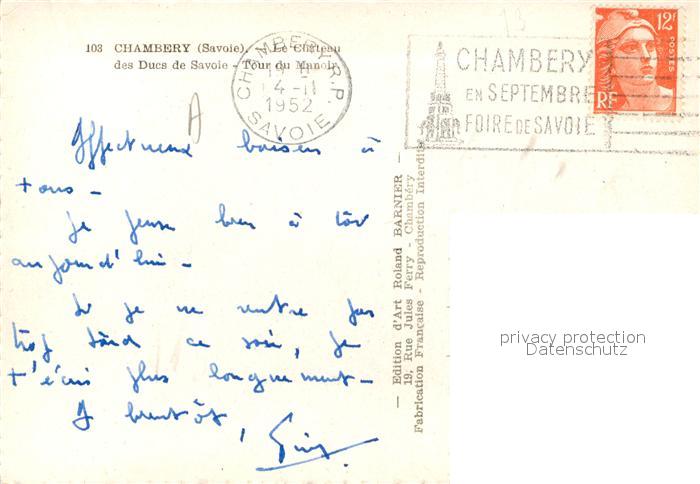 103 CHAMBERY (Savoie). - Le Château
des Ducs de Savoie - Tour du Manoir
CHAMBERY R.P.
4-11
1952
SAVOIE
CHAMBERY
EN SEPTEMBRE
FOIRE DE SAVOIE
12F
POSTES
RF
A
Affectueux baisers à
tous -
Je pense bien à toi
aujourd'hui -
Si je ne rentre pas
trop tard ce soir, je
t'écris plus longuement -
A bientôt,
— Edition d'Art Roland BARNIER —
19, Rue Jules Ferry - Chambéry
Fabrication Française - Reproduction Interdite
privacy protection
Datenschutz